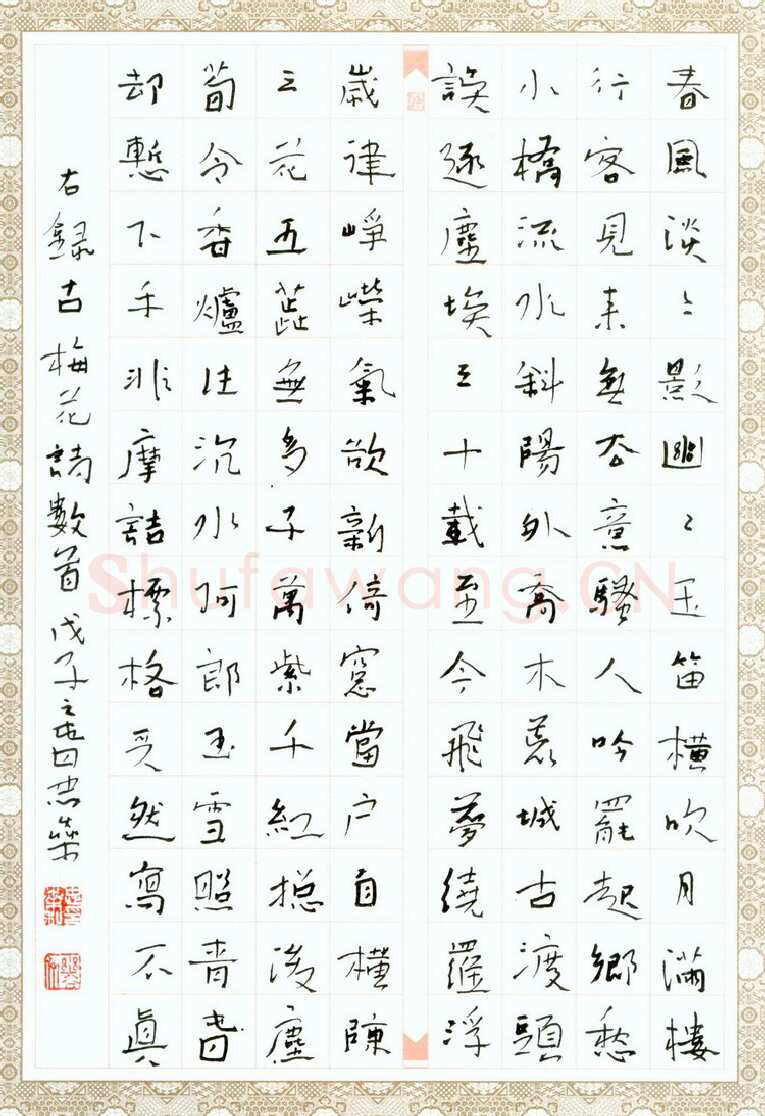 春風淡〻影幽〻玉笛橫吹月滿樓
行客見来無去意騷人吟罷起鄉愁
小橋流水斜陽外喬木荒城古渡頭
誤逐塵埃三十載至今飛夢繞羅浮
歲律崢嶸氣欲新倚窓當户自橫陳
三花五蕊無多子萬紫千紅揔後塵
荀令香爐住沉水何郎玉雪照青春
却慙下手非摩詰標格天然寫不眞
右錄古梅花詩數首戊子之春忠榮
Shufawang.CN